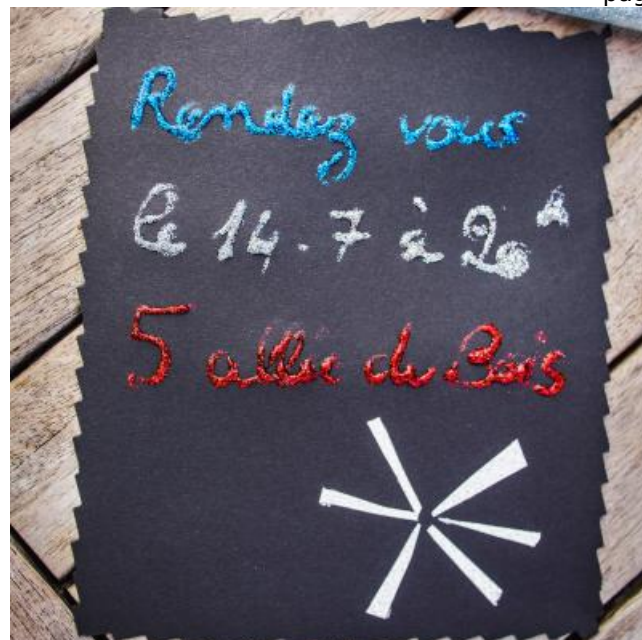 pag
Rendez vous
le 14.7 à 20h
5 allée du Bois